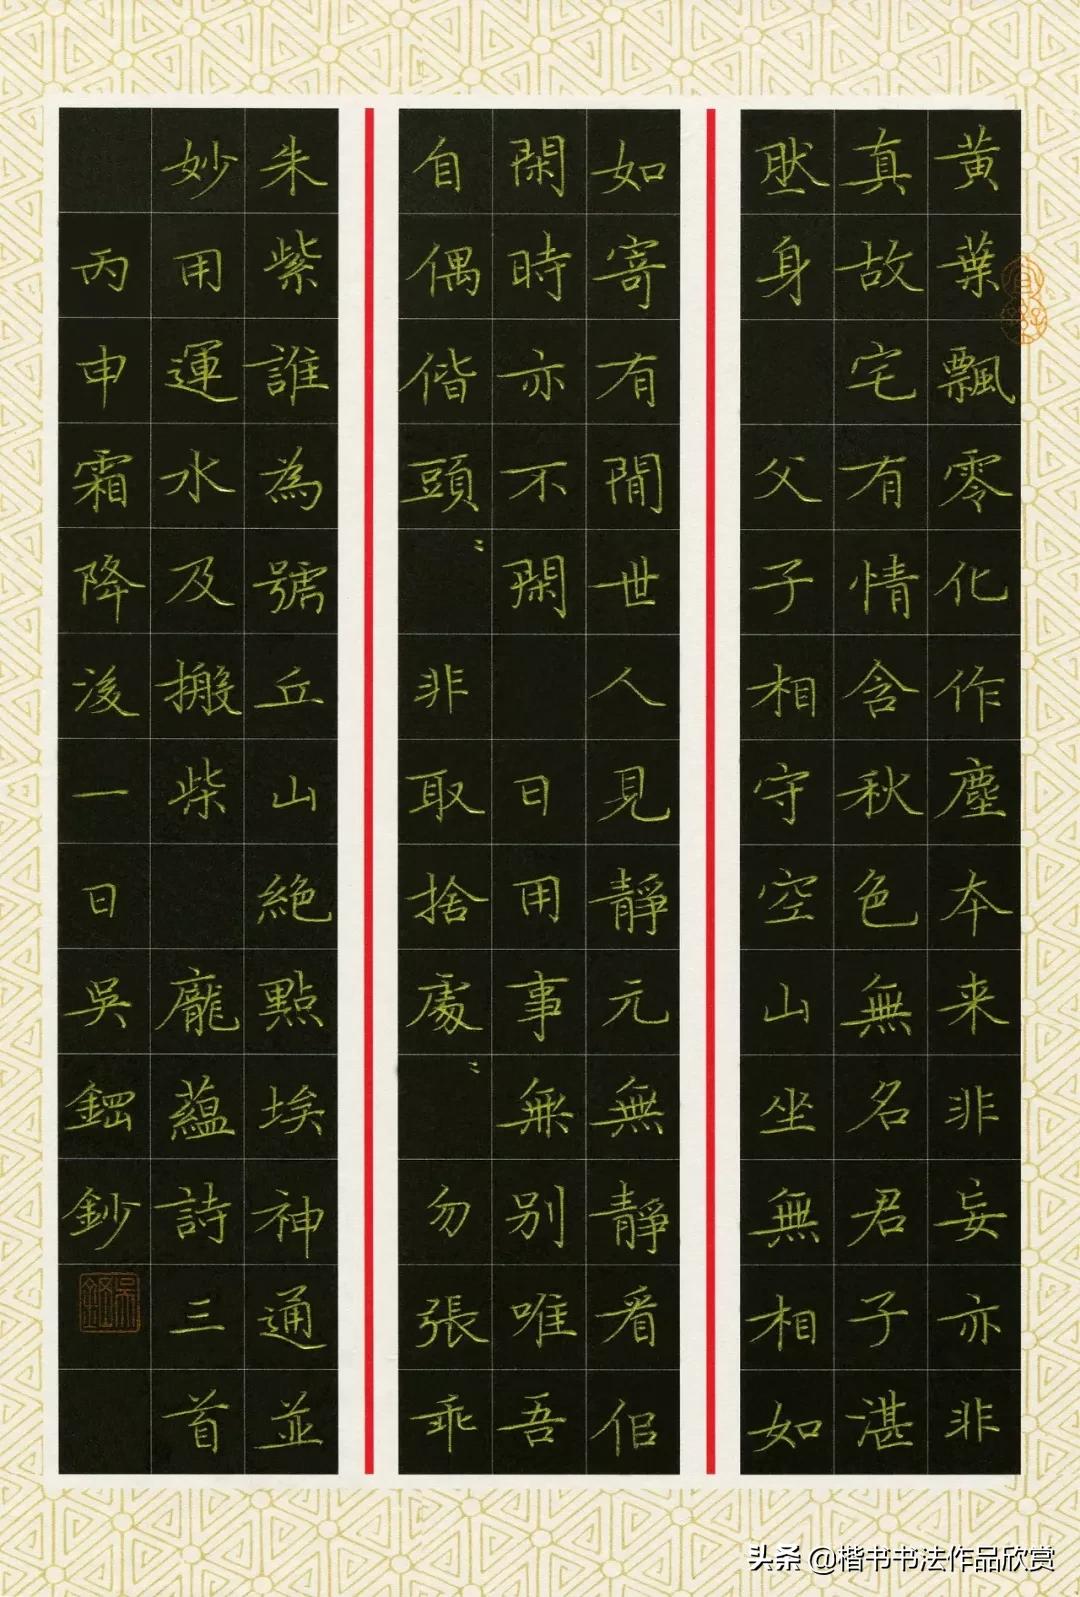 黄葉飄零化作塵本来非妄亦非
真故宅有情含秋色無名君子湛
肰身 父子相守空山坐無相如
如寄有閒世人見靜元無靜看佀
閑時亦不閑 日用事無别唯吾
自偶偕頭〻 非取捨處〻 勿張乖
朱紫誰為號丘山絶點埃神通並
妙用運水及搬柴 龐蘊詩三首
丙申霜降後一日吳鋼鈔
吳鋼
头条 @楷书书法作品欣赏